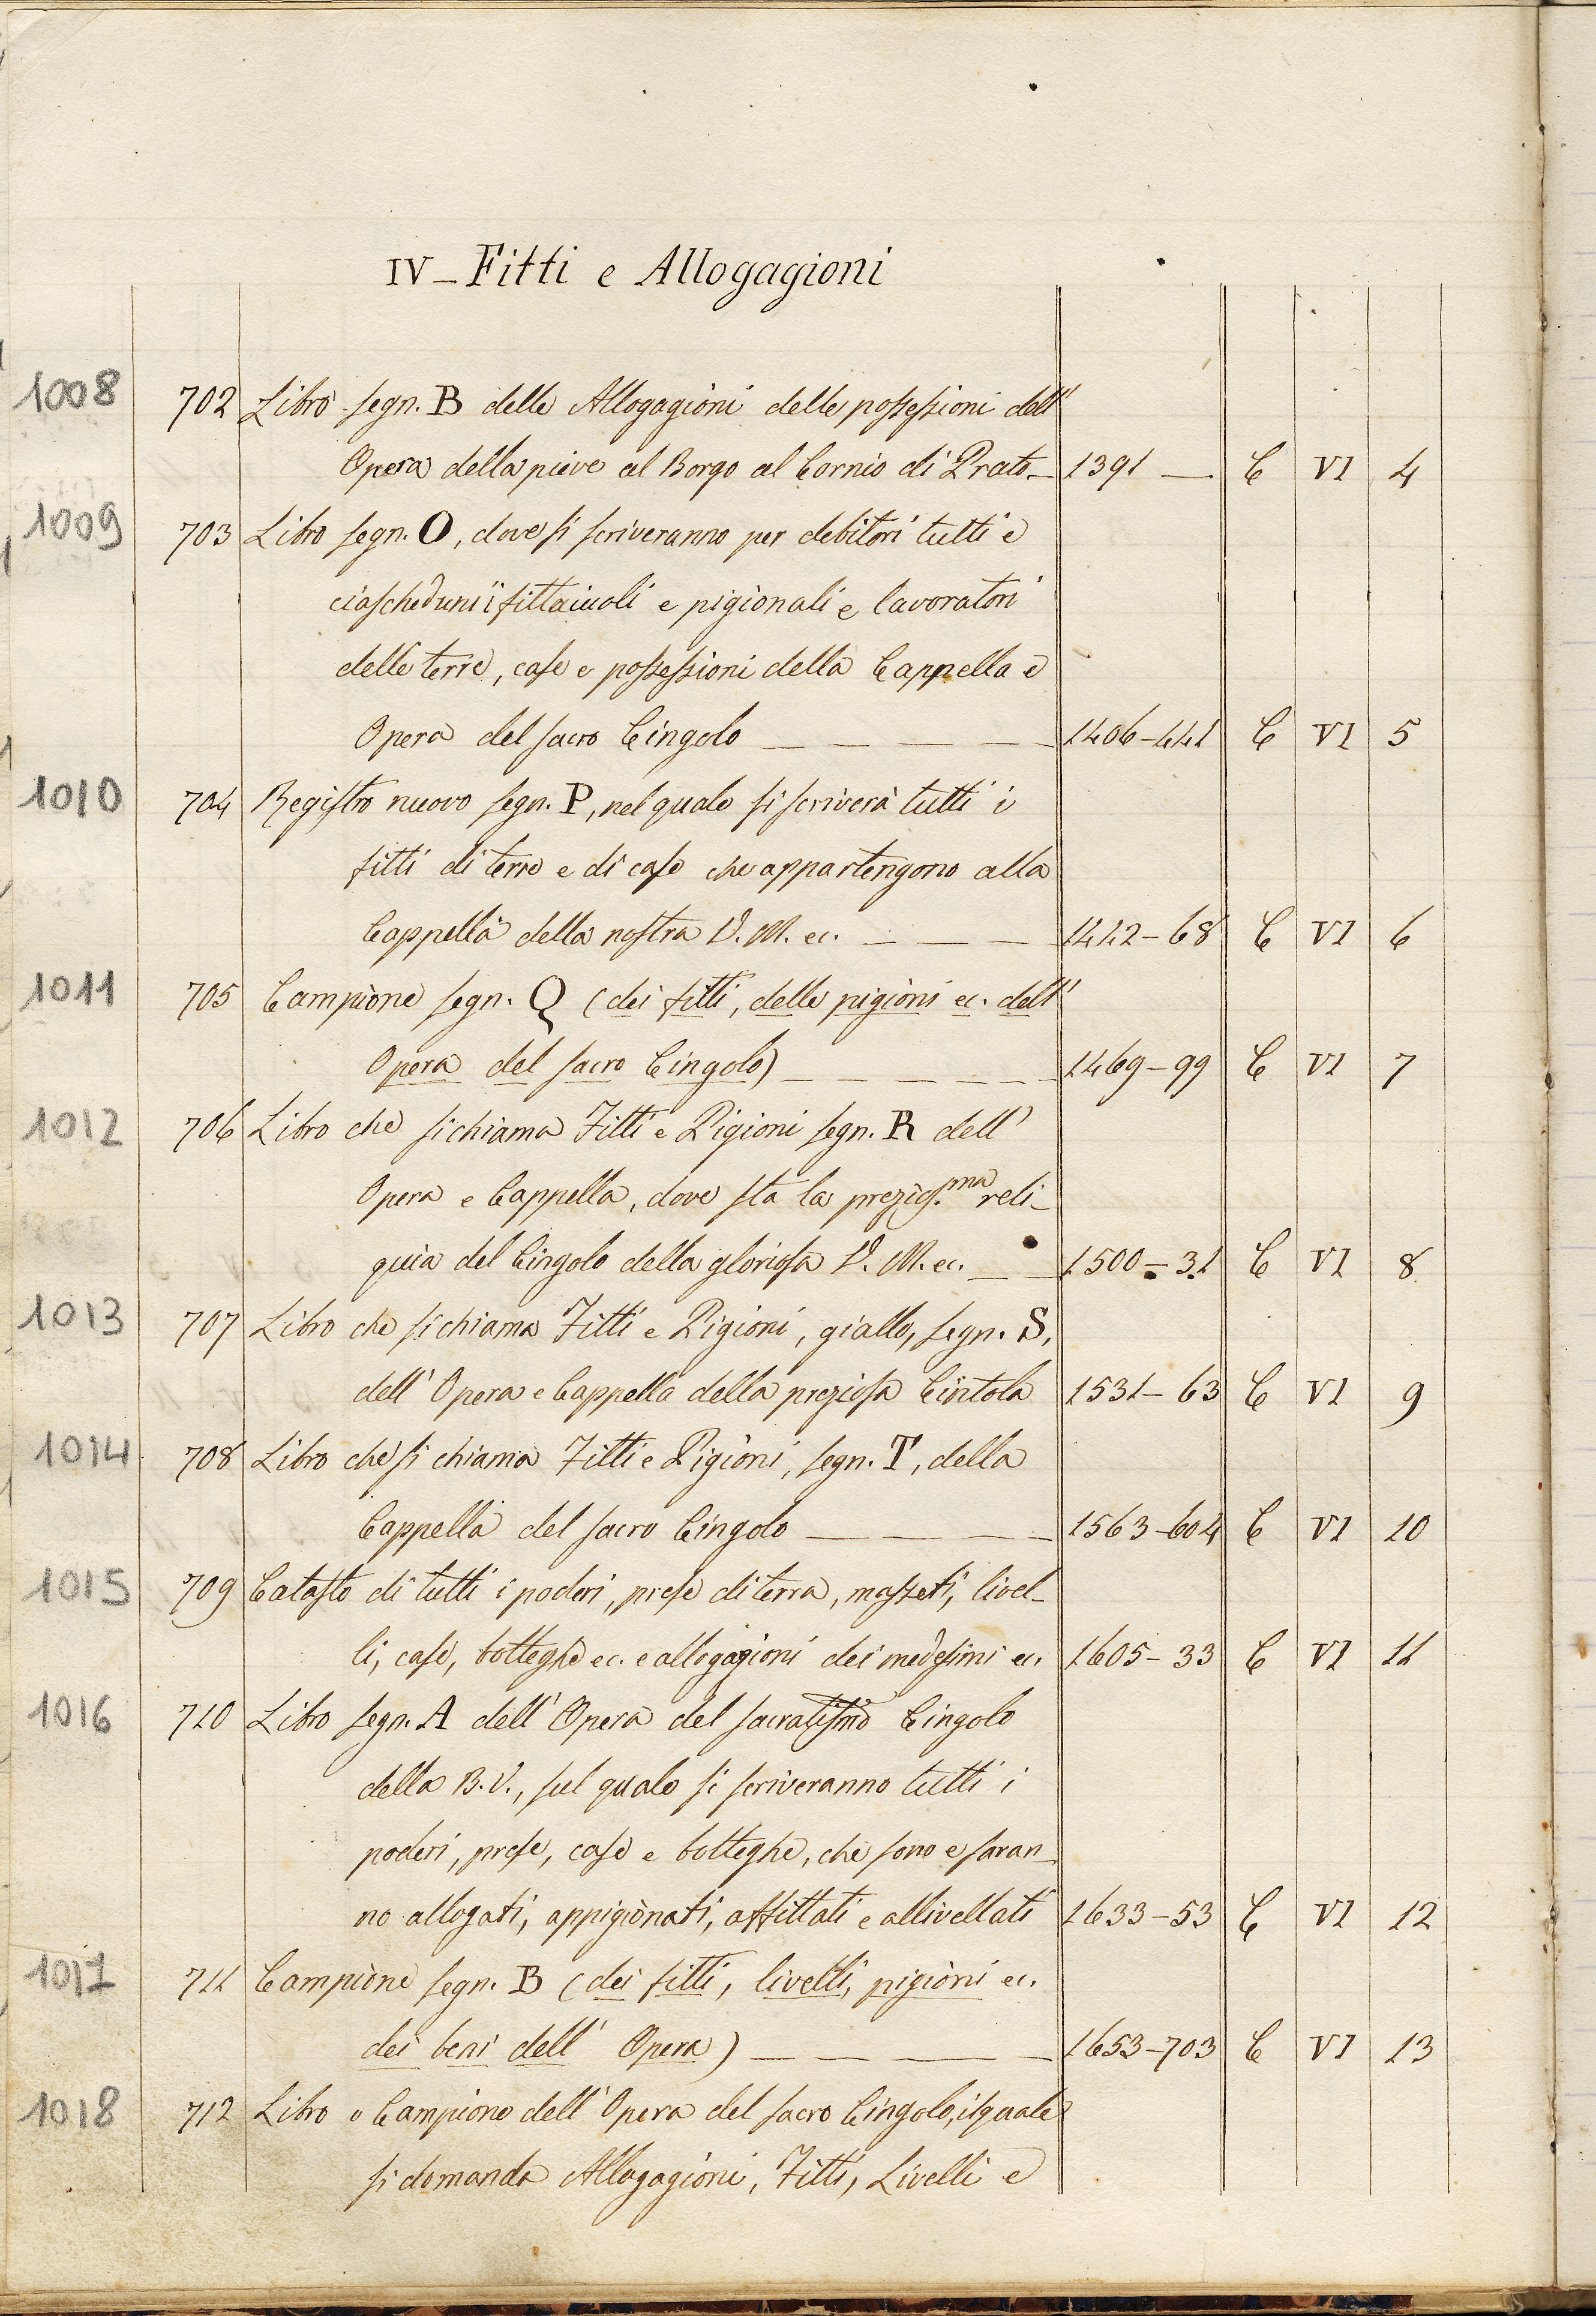 IV – Fitti e Allogagioni
1008 702 Libro segn. B delle Allogagioni delle possessioni dell'
Opera della pieve al Borgo al Cornio di Prato – 1391 — C VI 4
1009 703 Libro segn. O, dove si scriveranno per debitori tutti e
ciascheduni i fittaiuoli e pigionali e lavoratori
delle terre, case e possessioni della Cappella e
Opera del sacro Cingolo — — — — — 1406–441 C VI 5
1010 704 Registro nuovo segn. P, nel quale si scriverà tutti i
fitti di terre e di case che appartengono alla
Cappella della nostra V. M. ec. — — — 1442–68 C VI 6
1011 705 Campione segn. Q (dei fitti, delle pigioni ec. dell'
Opera del sacro Cingolo) — — — — — — 1469–99 C VI 7
1012 706 Libro che si chiama Fitti e Pigioni segn. R dell'
Opera e Cappella, dove sta la prezios.ma reli-
quia del Cingolo della gloriosa V. M. ec. — — 1500–31 C VI 8
1013 707 Libro che si chiama Fitti e Pigioni, giallo, segn. S,
dell' Opera e Cappella della preziosa Cintola 1531–63 C VI 9
1014 708 Libro che si chiama Fitti e Pigioni, segn. T, della
Cappella del sacro Cingolo — — — — 1563–604 C VI 10
1015 709 Catasto di tutti i poderi, prese di terra, masseti, livel-
li, case, botteghe ec. e allogagioni dei medesimi ec. 1605–33 C VI 11
1016 710 Libro segn. A dell' Opera del sacratissmo Cingolo
della B. V., sul quale si scriveranno tutti i
poderi, prese, case e botteghe, che sono e saran-
no allogati, appigionati, affittati e allivellati 1633–53 C VI 12
1017 711 Campione segn. B (dei fitti, livelli, pigioni ec.
dei beni dell' Opera) — — — — 1653–703 C VI 13
1018 712 Libro o Campione dell' Opera del sacro Cingolo, il quale
si domanda Allogagioni, Fitti, Livelli e